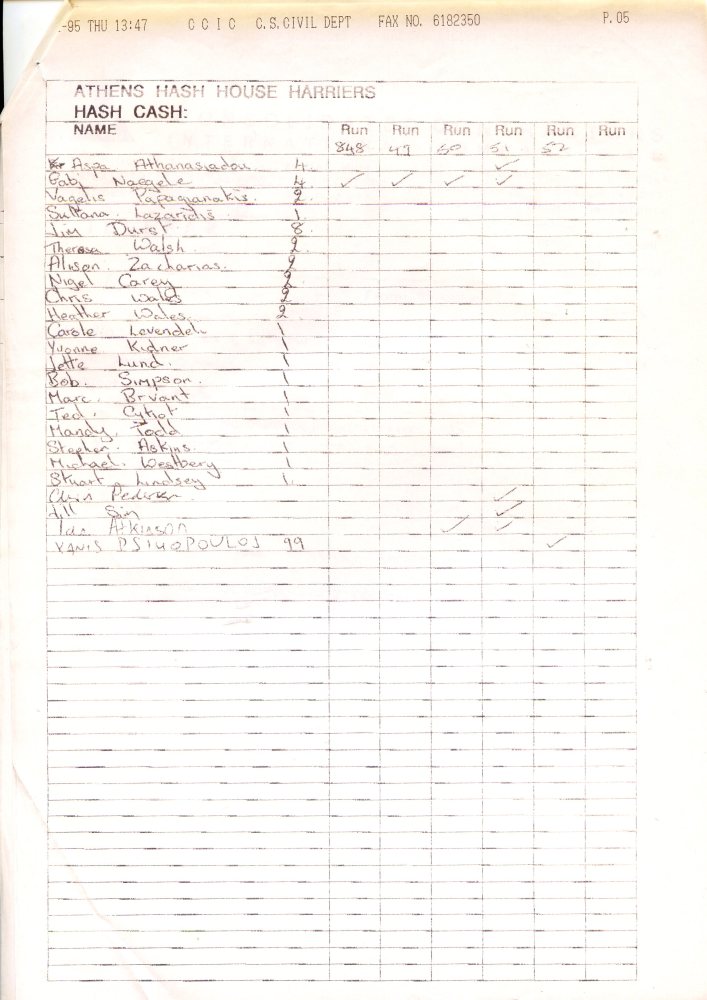 -95 THU 13:47 C C I C C.S.CIVIL DEPT FAX NO. 6182350 P.05
ATHENS HASH HOUSE HARRIERS
HASH CASH:
NAME Run Run Run Run Run Run
848 49 50 51 52
Aspa Athanasiadou 4 ✓
Gabi Naegele 4 ✓ ✓ ✓ ✓
Vagelis Papagianakis. 2
Sultana Lazaridis 1
Jim Durst 8
Theresa Walsh 2
Alison Zacharias. 2
Nigel Carey 2
Chris Wales 2
Heather Wales 2
Carole 1
Yvonne Kidner 1
Jette Lund. 1
Bob. Simpson. 1
Marc. Bryant 1
Ted. 1
Mandy. Todd 1
Stephen. Askins. 1
Michael. Westbery 1
Stuart Lindsey 1
✓
Jill ✓
Ida Atkinson ✓ ✓
YANIS 99 ✓